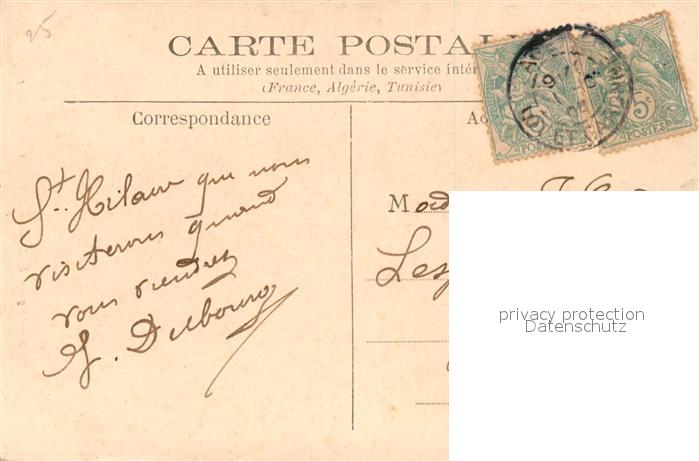 25
CARTE POSTAL
A utiliser seulement dans le service intéri
(France, Algérie, Tunisie)
Correspondance
Ad
St. Hilaire que nous
visiterons quand
vous viendrez
Mad
Les
5c
POSTES
POSTES
ET
privacy protection
Datenschutz